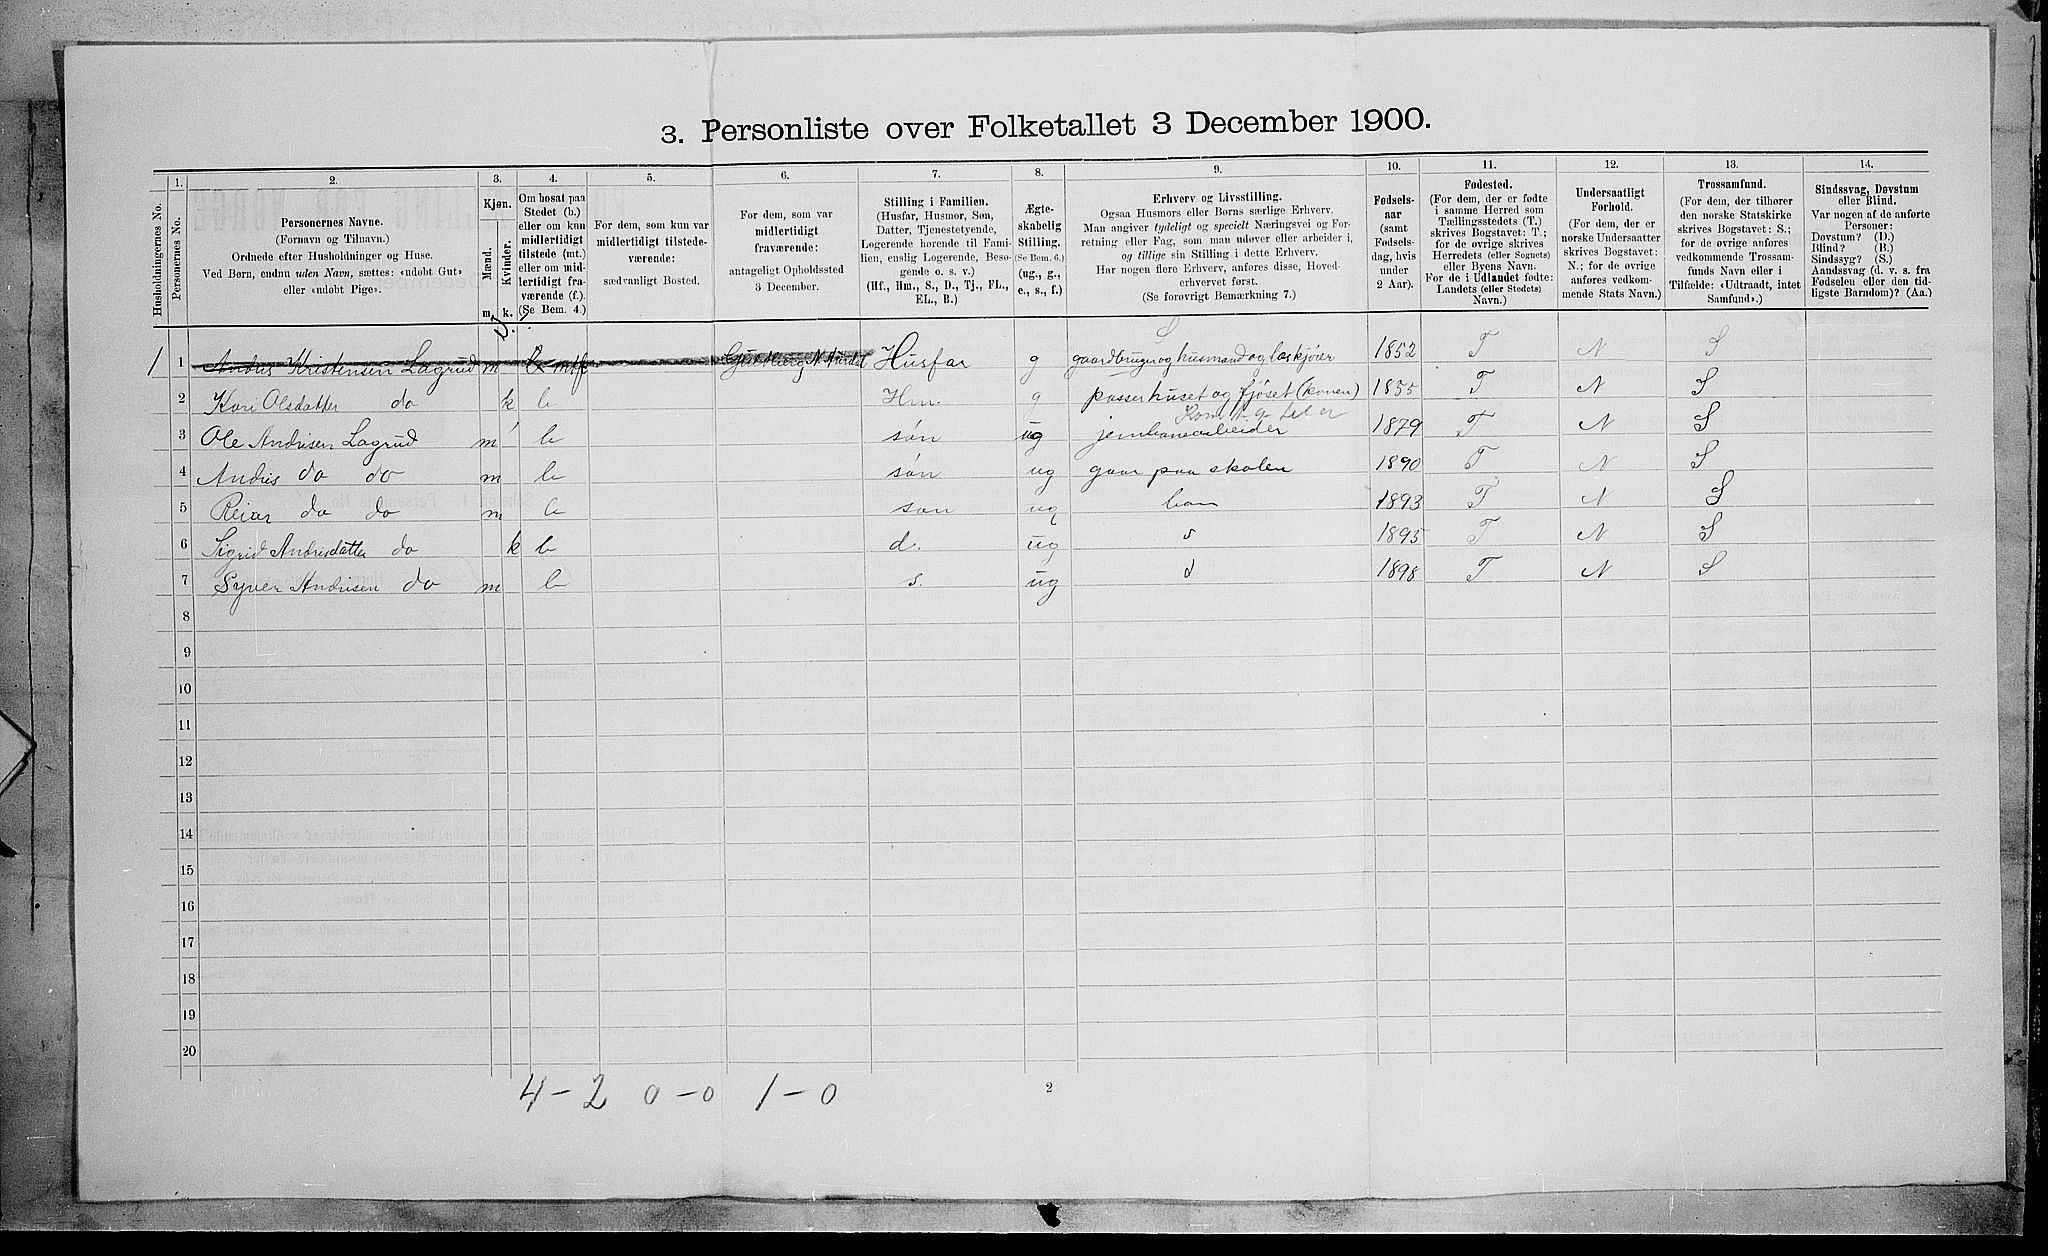 3. Personliste over Folketallet 3 December 1900.
Husholdningernes No.
1.
Personernes No.
2.
Personernes Navne.
(Fornavn og Tilnavn.)
Ordnede efter Husholdninger og Huse.
Ved Børn, endnu uden Navn, sættes: «udøbt Gut»
eller «udøbt Pige».
3.
Kjøn.
Mænd. Kvinder.
m. k.
4.
Om bosat paa
Stedet (b.)
eller om kun
midlertidigt
tilstede (mt.)
eller om mid-
lertidigt fra-
værende (f.).
(Se Bem. 4.)
5.
For dem, som kun var
midlertidigt tilstede-
værende:
sædvanligt Bosted.
6.
For dem, som var
midlertidigt
fraværende:
antageligt Opholdssted
3 December.
7.
Stilling i Familien.
(Husfar, Husmor, Søn,
Datter, Tjenestetyende,
Logerende hørende til Fami-
lien, enslig Logerende, Besø-
gende o. s. v.)
(Hf., Hm., S., D., Tj., FL.,
EL., B.)
8.
Ægte-
skabelig
Stilling.
(Se Bem. 6.)
(ug., g.,
e., s., f.)
9.
Erhverv og Livsstilling.
Ogsaa Husmors eller Børns særlige Erhverv.
Man angiver tydeligt og specielt Næringsvei og For-
retning eller Fag, som man udøver eller arbeider i,
og tillige sin Stilling i dette Erhverv.
Har nogen flere Erhverv, anføres disse, Hoved-
erhvervet først.
(Se forøvrigt Bemærkning 7.)
10.
Fødsels-
aar
(samt
Fødsels-
dag, hvis
under
2 Aar).
11.
Fødested.
(For dem, der er fødte
i samme Herred som
Tællingsstedets (T.)
skrives Bogstavet: T.;
for de øvrige skrives
Herredets (eller Sognets)
eller Byens Navn.
For de i Udlandet fødte:
Landets (eller Stedets)
Navn.)
12.
Undersaatligt
Forhold.
(For dem, der er
norske Undersaatter
skrives Bogstavet:
N.; for de øvrige
anføres vedkom-
mende Stats Navn.)
13.
Trossamfund.
(For dem, der tilhører
den norske Statskirke
skrives Bogstavet: S.;
for de øvrige anføres
vedkommende Trossam-
funds Navn eller i
Tilfælde: «Udtraadt, intet
Samfund».)
14.
Sindssvag, Døvstum
eller Blind.
Var nogen af de anførte
Personer:
Døvstum? (D.)
Blind? (B.)
Sindssyg? (S.)
Aandssvag (d. v. s. fra
Fødselen eller den tid-
ligste Barndom)? (Aa.)
1 1 Andris Kristensen Lagrud m b mtf Husfar g gaardbruger og husmand og laskjører 1852 T N S
2 Kari Olsdatter do k b Hm. g passer huset og fjöset (konen) 1855 T N S
3 Ole Andrisen Lagrud m b søn ug jernbanearbeider 1879 T N S
4 Andris do do m b søn ug gaar paa skolen 1890 T N S
5 Reiar do do m b søn ug 1893 T N S
6 Sigrid Andrisdatter do k b d. ug 1895 T N S
7 Syver Andrisen do m b s. ug 1898 T N S
8
9
10
11
12
13
14
15
16
17
18
19
20
4-2 0-0 1-0
2